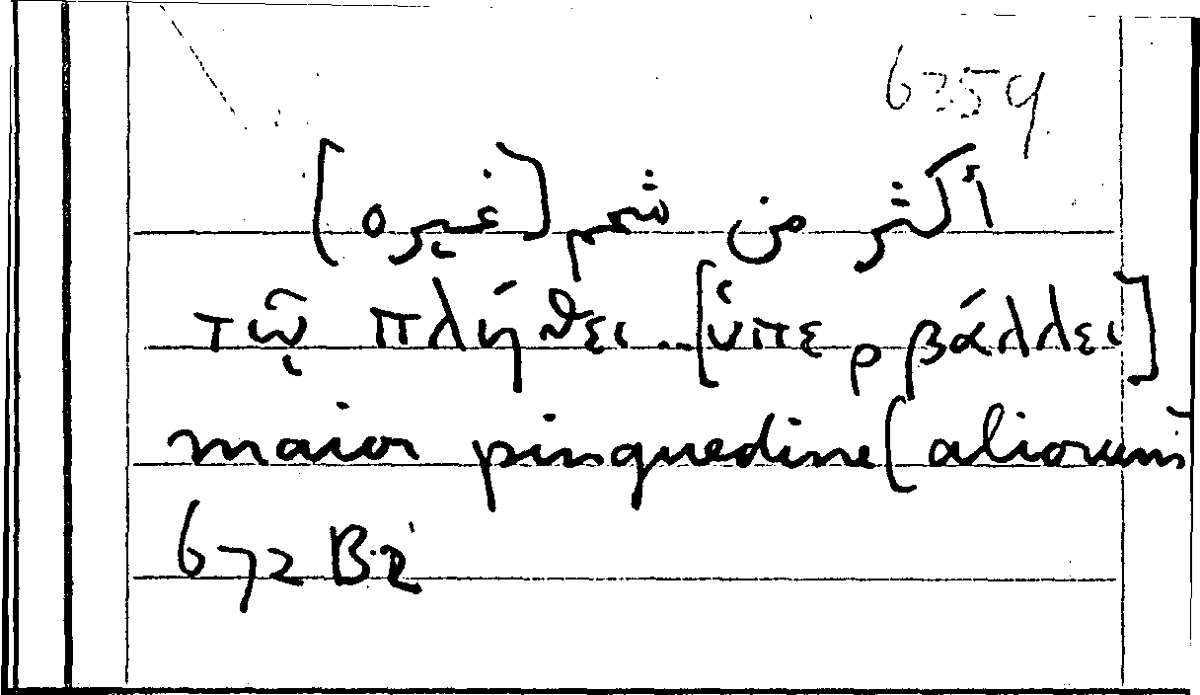 6354
أكثر من شحم [غيره]
τῷ πλήθει...[ὑπερβάλλει]
maior pinguedine [aliorum
672 B2